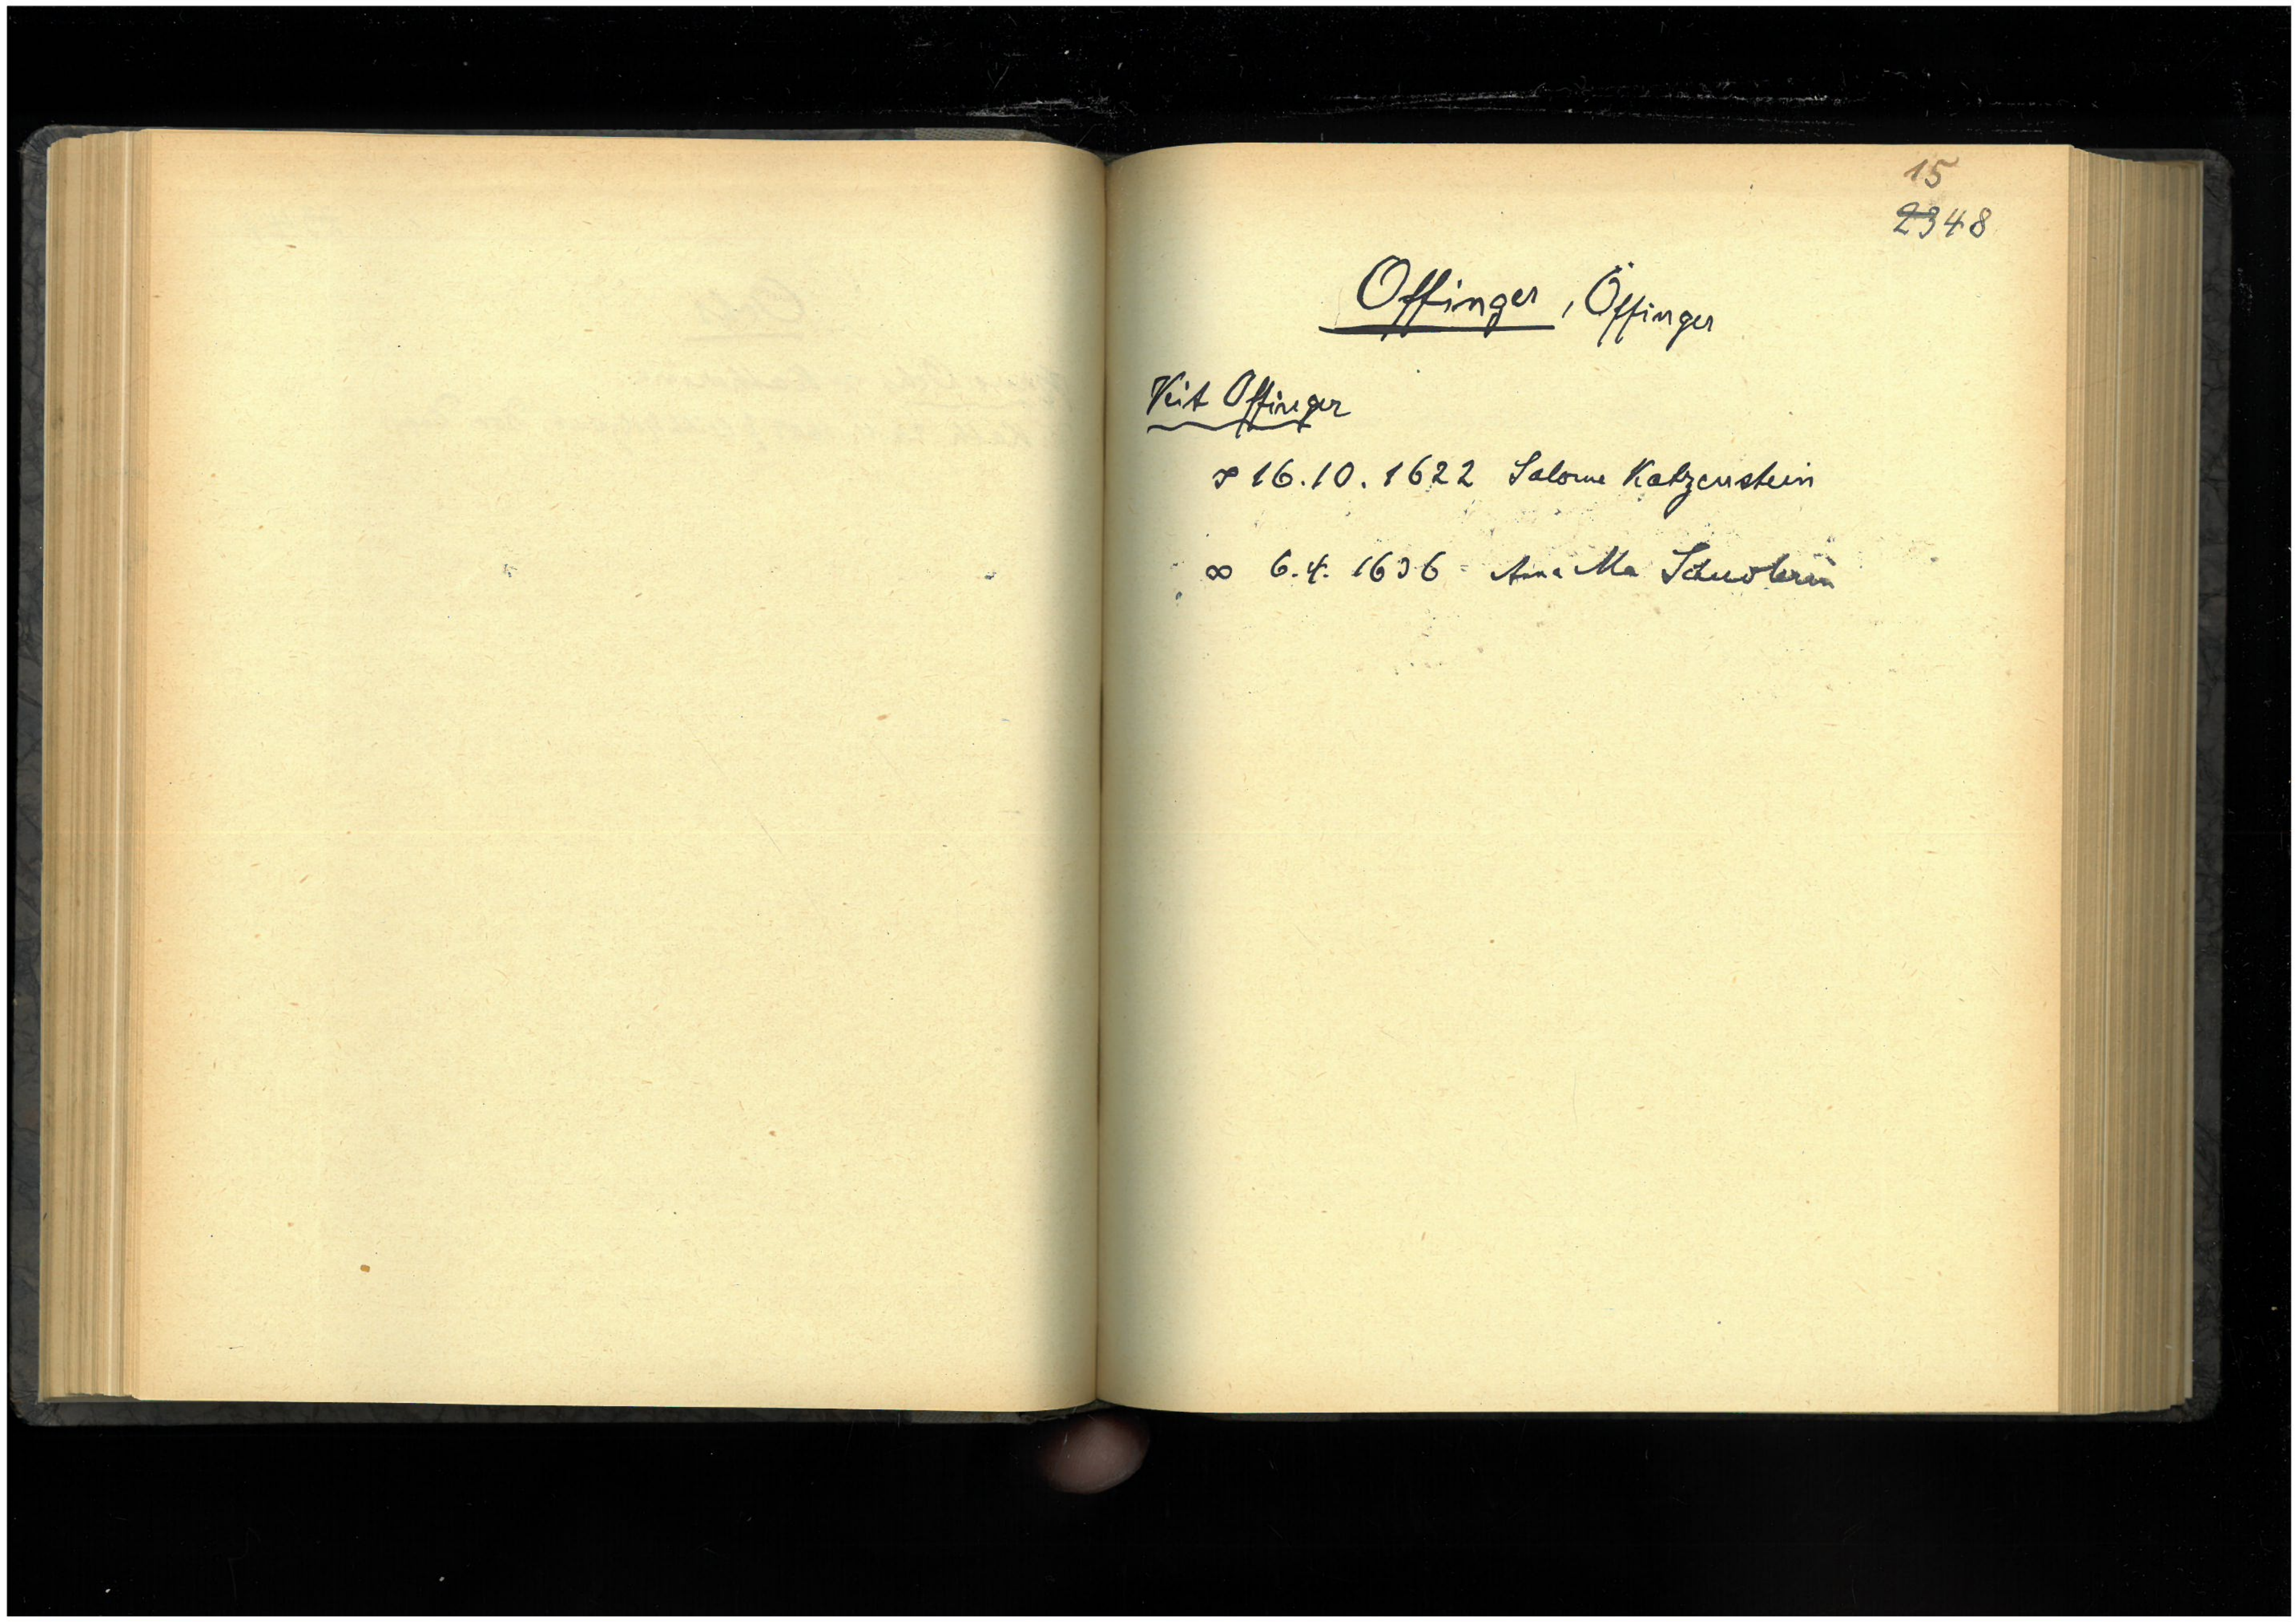 15
2348
Offinger, Öffinger
Veit Offinger
∞ 16.10.1622 Salome Katzenstein
∞ 6.4. 1636 Anna Ma